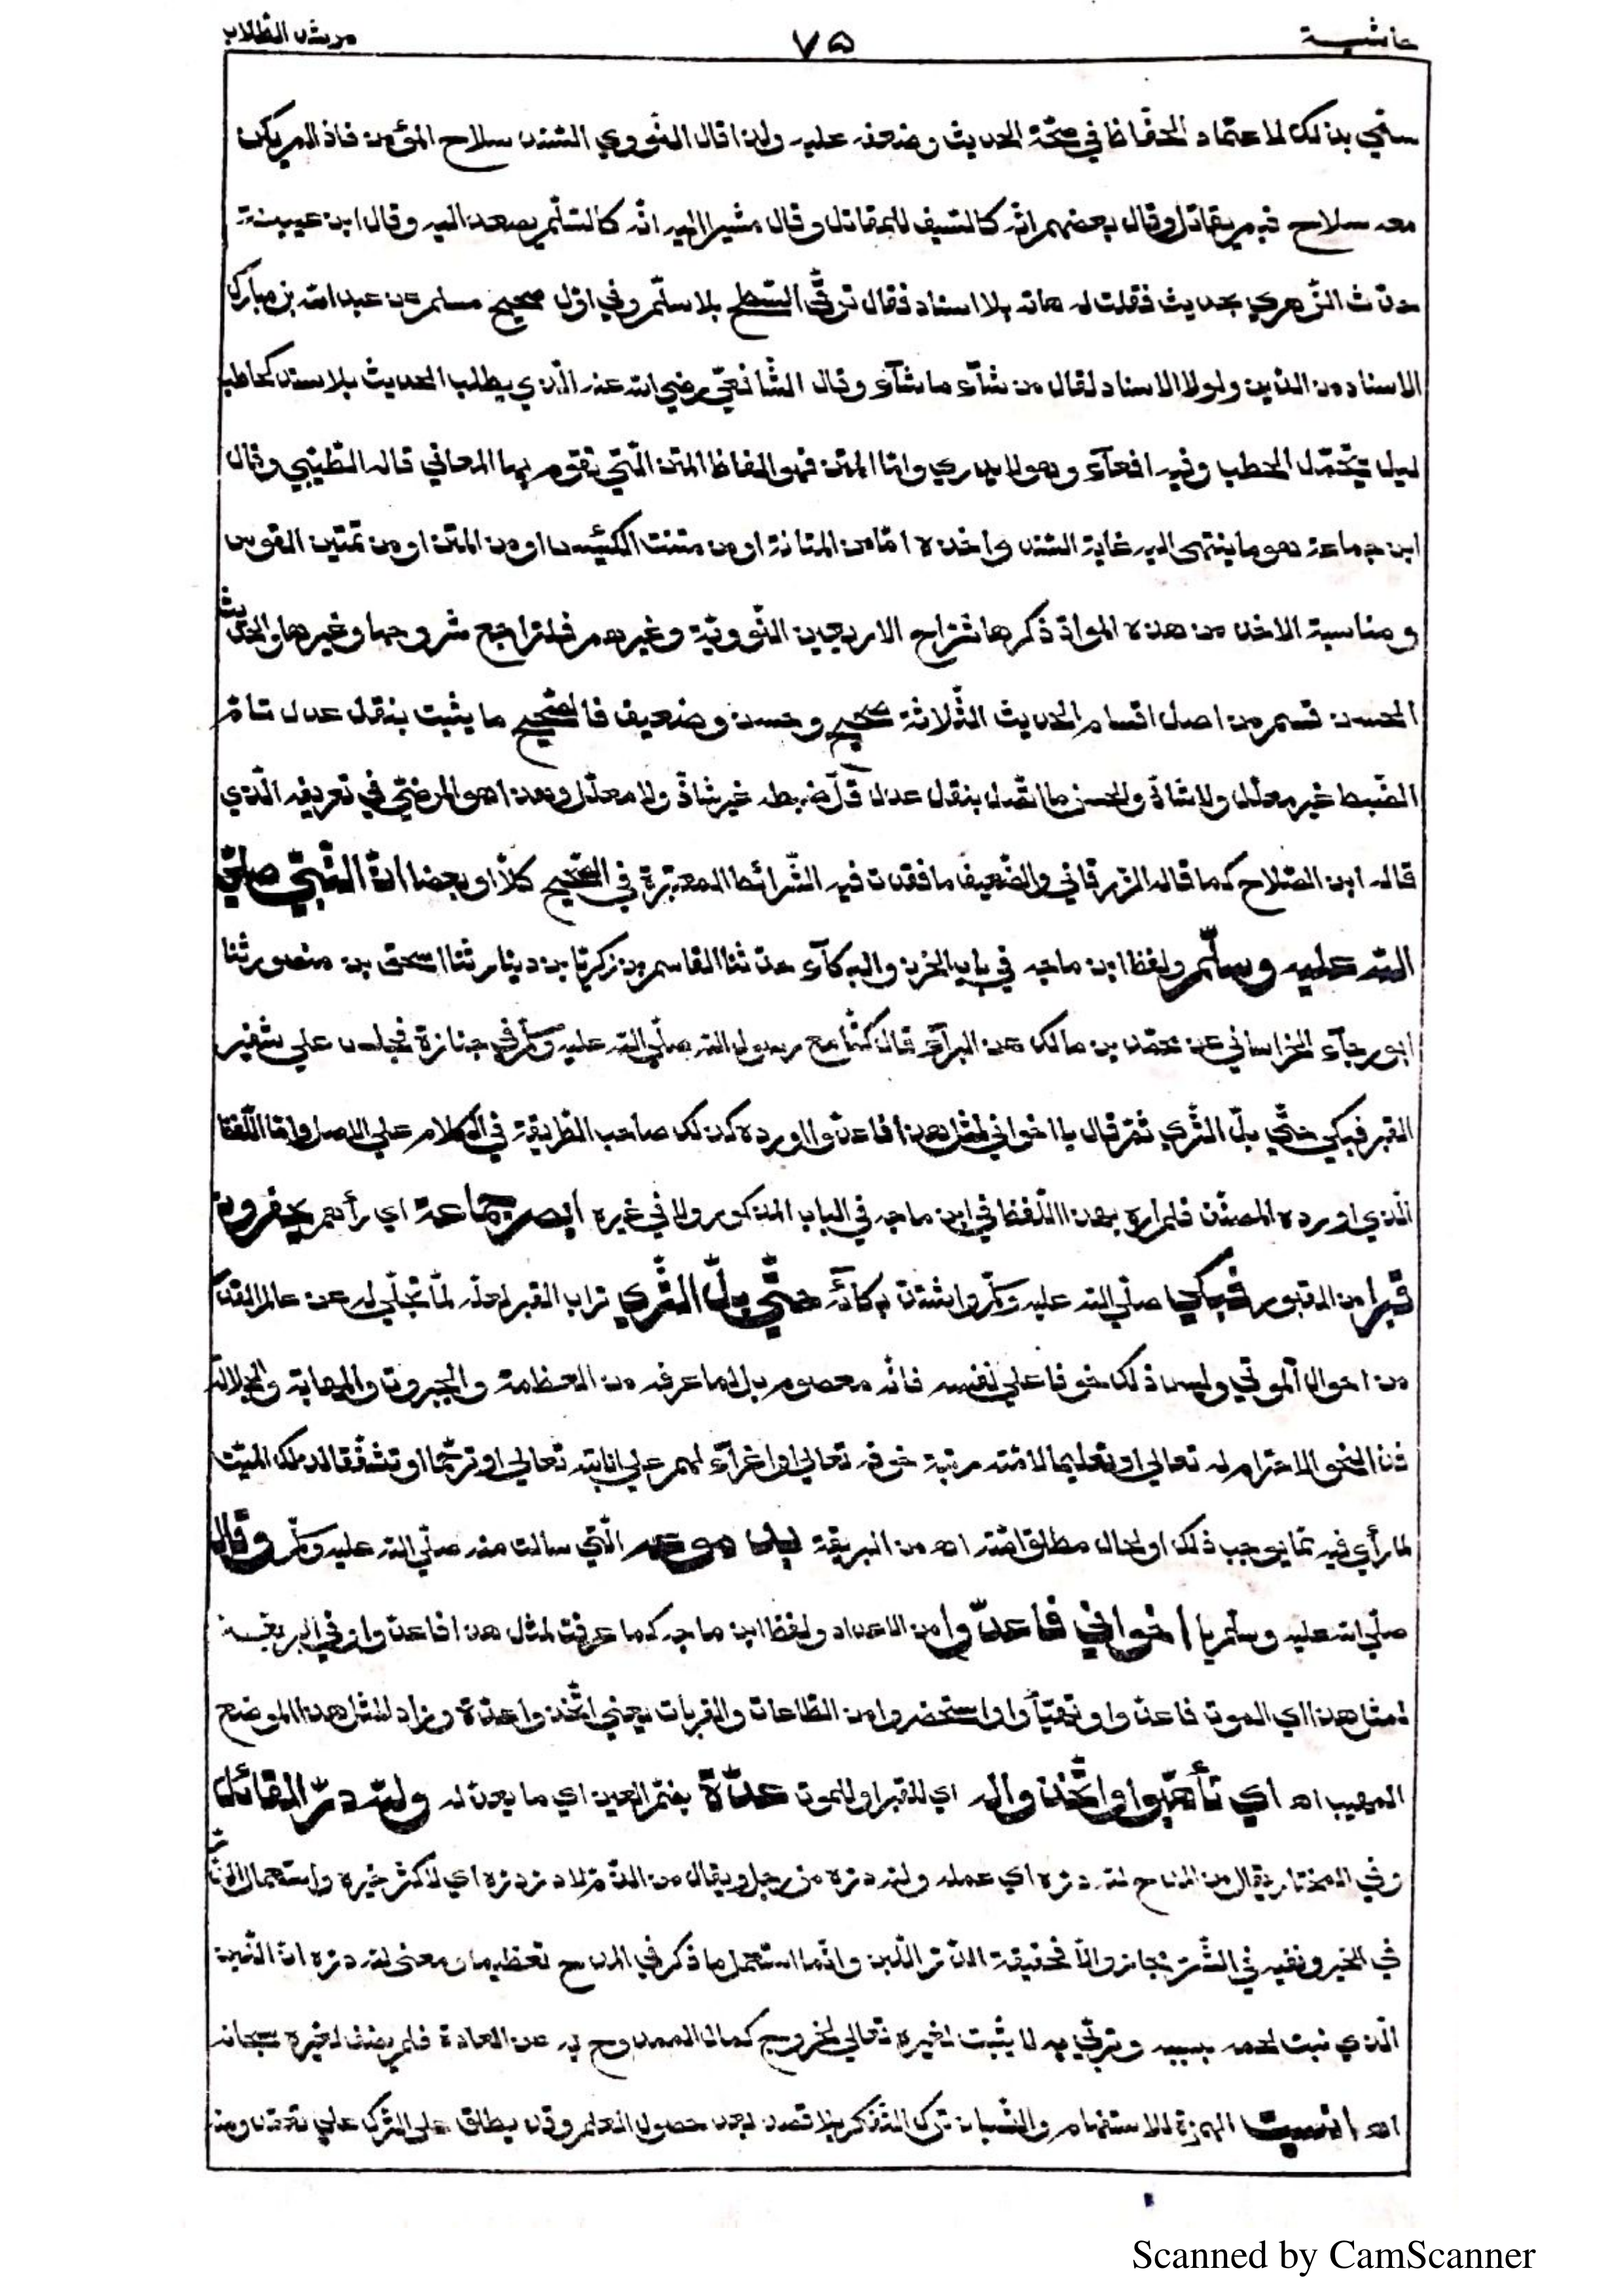 حاشية ٧٥ مرشد الطّلاب
سمّي بذلك لاعتماد الحفّاظ في صحّة الحديث وضعفه عليه ولذا قال النّووي السّند سلاح المؤمن فاذا لم يكن
معه سلاح فبم يقاتل وقال بعضهم انّه كالسّيف للمقاتل وقال مشيرا اليه انّه كالسّلّم يصعد اليه وقال ابن عيينة
حدّث الزّهري بحديث فقلت له هاته بلا اسناد فقال ترقّى السّطح بلا سلّم وفي اوّل صحيح مسلم عن عبد الله بن مبارك
الاسناد من الدّين ولولا الاسناد لقال من شآء ما شآء وقال الشّافعيّ رضي الله عنه الّذي يطلب الحديث بلا سند كحاطب
ليل يحتمل الحطب وفيه افعآء وهو لا يدري وامّا المتن فهو الفاظ المتن الّتي تقوم بها المعاني قاله الطّيبي وقال
ابن جماعة هو ما ينتهى اليه غاية السّند واخذه امّا من المتانة او من متنت الكبش او من المتن او من تمتين القوس
ومناسبة الاخذ من هذه الموادّ ذكرها شرّاح الاربعين النّوويّة وغيرهم فلتراجع شروحها وغيرها والحديث
الحسن قسم من اصل اقسام الحديث الثّلاثة صحيح وحسن وضعيف فالصّحيح ما يثبت بنقل عدل تامّ
الضّبط غير معلّل ولا شاذّ والحسن ما اتّصل بنقل عدل قلّ ضبطه غير شاذّ ولا معلّل وهذا هو المرضيّ في تعريفه الّذي
قاله ابن الصّلاح كما قاله الزرقاني والضّعيف ما فقدت فيه الشّرائط المعتبرة في الصّحيح كلّا او بعضا انّ النّبيّ صلّى
الله عليه وسلّم ولفظ ابن ماجه في باب الحزن والبكآء حدّثنا القاسم بن زكريّا بن دينار ثنا اسحق بن منصور ثنا
ابو رجآء الخراساني عن محمّد بن مالك عن البرآء قال كنّا مع رسول الله صلّى الله عليه وسلّم في جنازة فجلس على شفير
القبر فبكى حتّى بلّ الثّرى ثمّ قال يا اخواني لمثل هذا فاعدّوا اورده كذلك صاحب الطّريقة في الكلام على الاصل وامّا اللّفظ
الّذي اورده المصنّف فلم اره بهذا اللّفظ في ابن ماجه في الباب المذكور ولا في غيره ابصر جماعة اي رأهم يحفرون
قبرا من القبور فبكى صلّى الله عليه وسلّم واشتدّ بكآئه حتّى بلّ الثّرى تراب القبر لعلّه لمّا تجلّى له عن عالم القدس
من احوال الموتى وليس ذلك خوفا على نفسه فانّه معصوم بل لما عرفه من العظمة والجبروت والمهابة والجلالة
لله تعالى او تعليما لامّته مرتبة خوفه تعالى او اغرآء لهم على انابته تعالى او ترحّما او تشفّقا لذلك الميّت
لما رأى فيه ممّا يوجب ذلك او لحال مطلق امّته اهـ من البريقة الّتي سالت منه صلّى الله عليه وسلّم وقال
صلّى الله عليه وسلّم يا اخواني فاعدّوا من الاعداد ولفظ ابن ماجه كما عرفت لمثل هذا فاعدّوا وفي البريقة
لمثل هذا اي الموت فاعدّوا وتهيّأوا واستحضروا من الطّاعات والقربات يعني اتّخذوا عدّة وزادا لمثل هذا الموضع
المهيب اهـ اي تأهّبوا واتّخذوا له اي للقبر او للموت عدّة بضمّ العين اي ما يعدّ له ولله درّ القائل
وفي المختار يقال من المدح لله درّه اي عمله ولله درّه من رجل ويقال من الذّمّ لا درّ درّه اي لا كثر خيره واستعمال الدّرّ
في الخير ونفيه في الشّرّ مجاز والّا فحقيقة الدّرّ اللّبن وانّما استعمل ما ذكر في المدح تعظيما ومعنى لله درّه انّ اللّبن
الّذي نبت لحمه بسببه وتربّى به لا يثبت لغيره تعالى لخروج كمال الممدوح به عن العادة فلم يضف لغيره سبحانه
اهـ انسيت الهمزة للاستفهام والنّسيان ترك التّذكّر بلا قصد بعد حصول العلم وقد يطلق على التّرك على تعمّد ومنه
Scanned by CamScanner